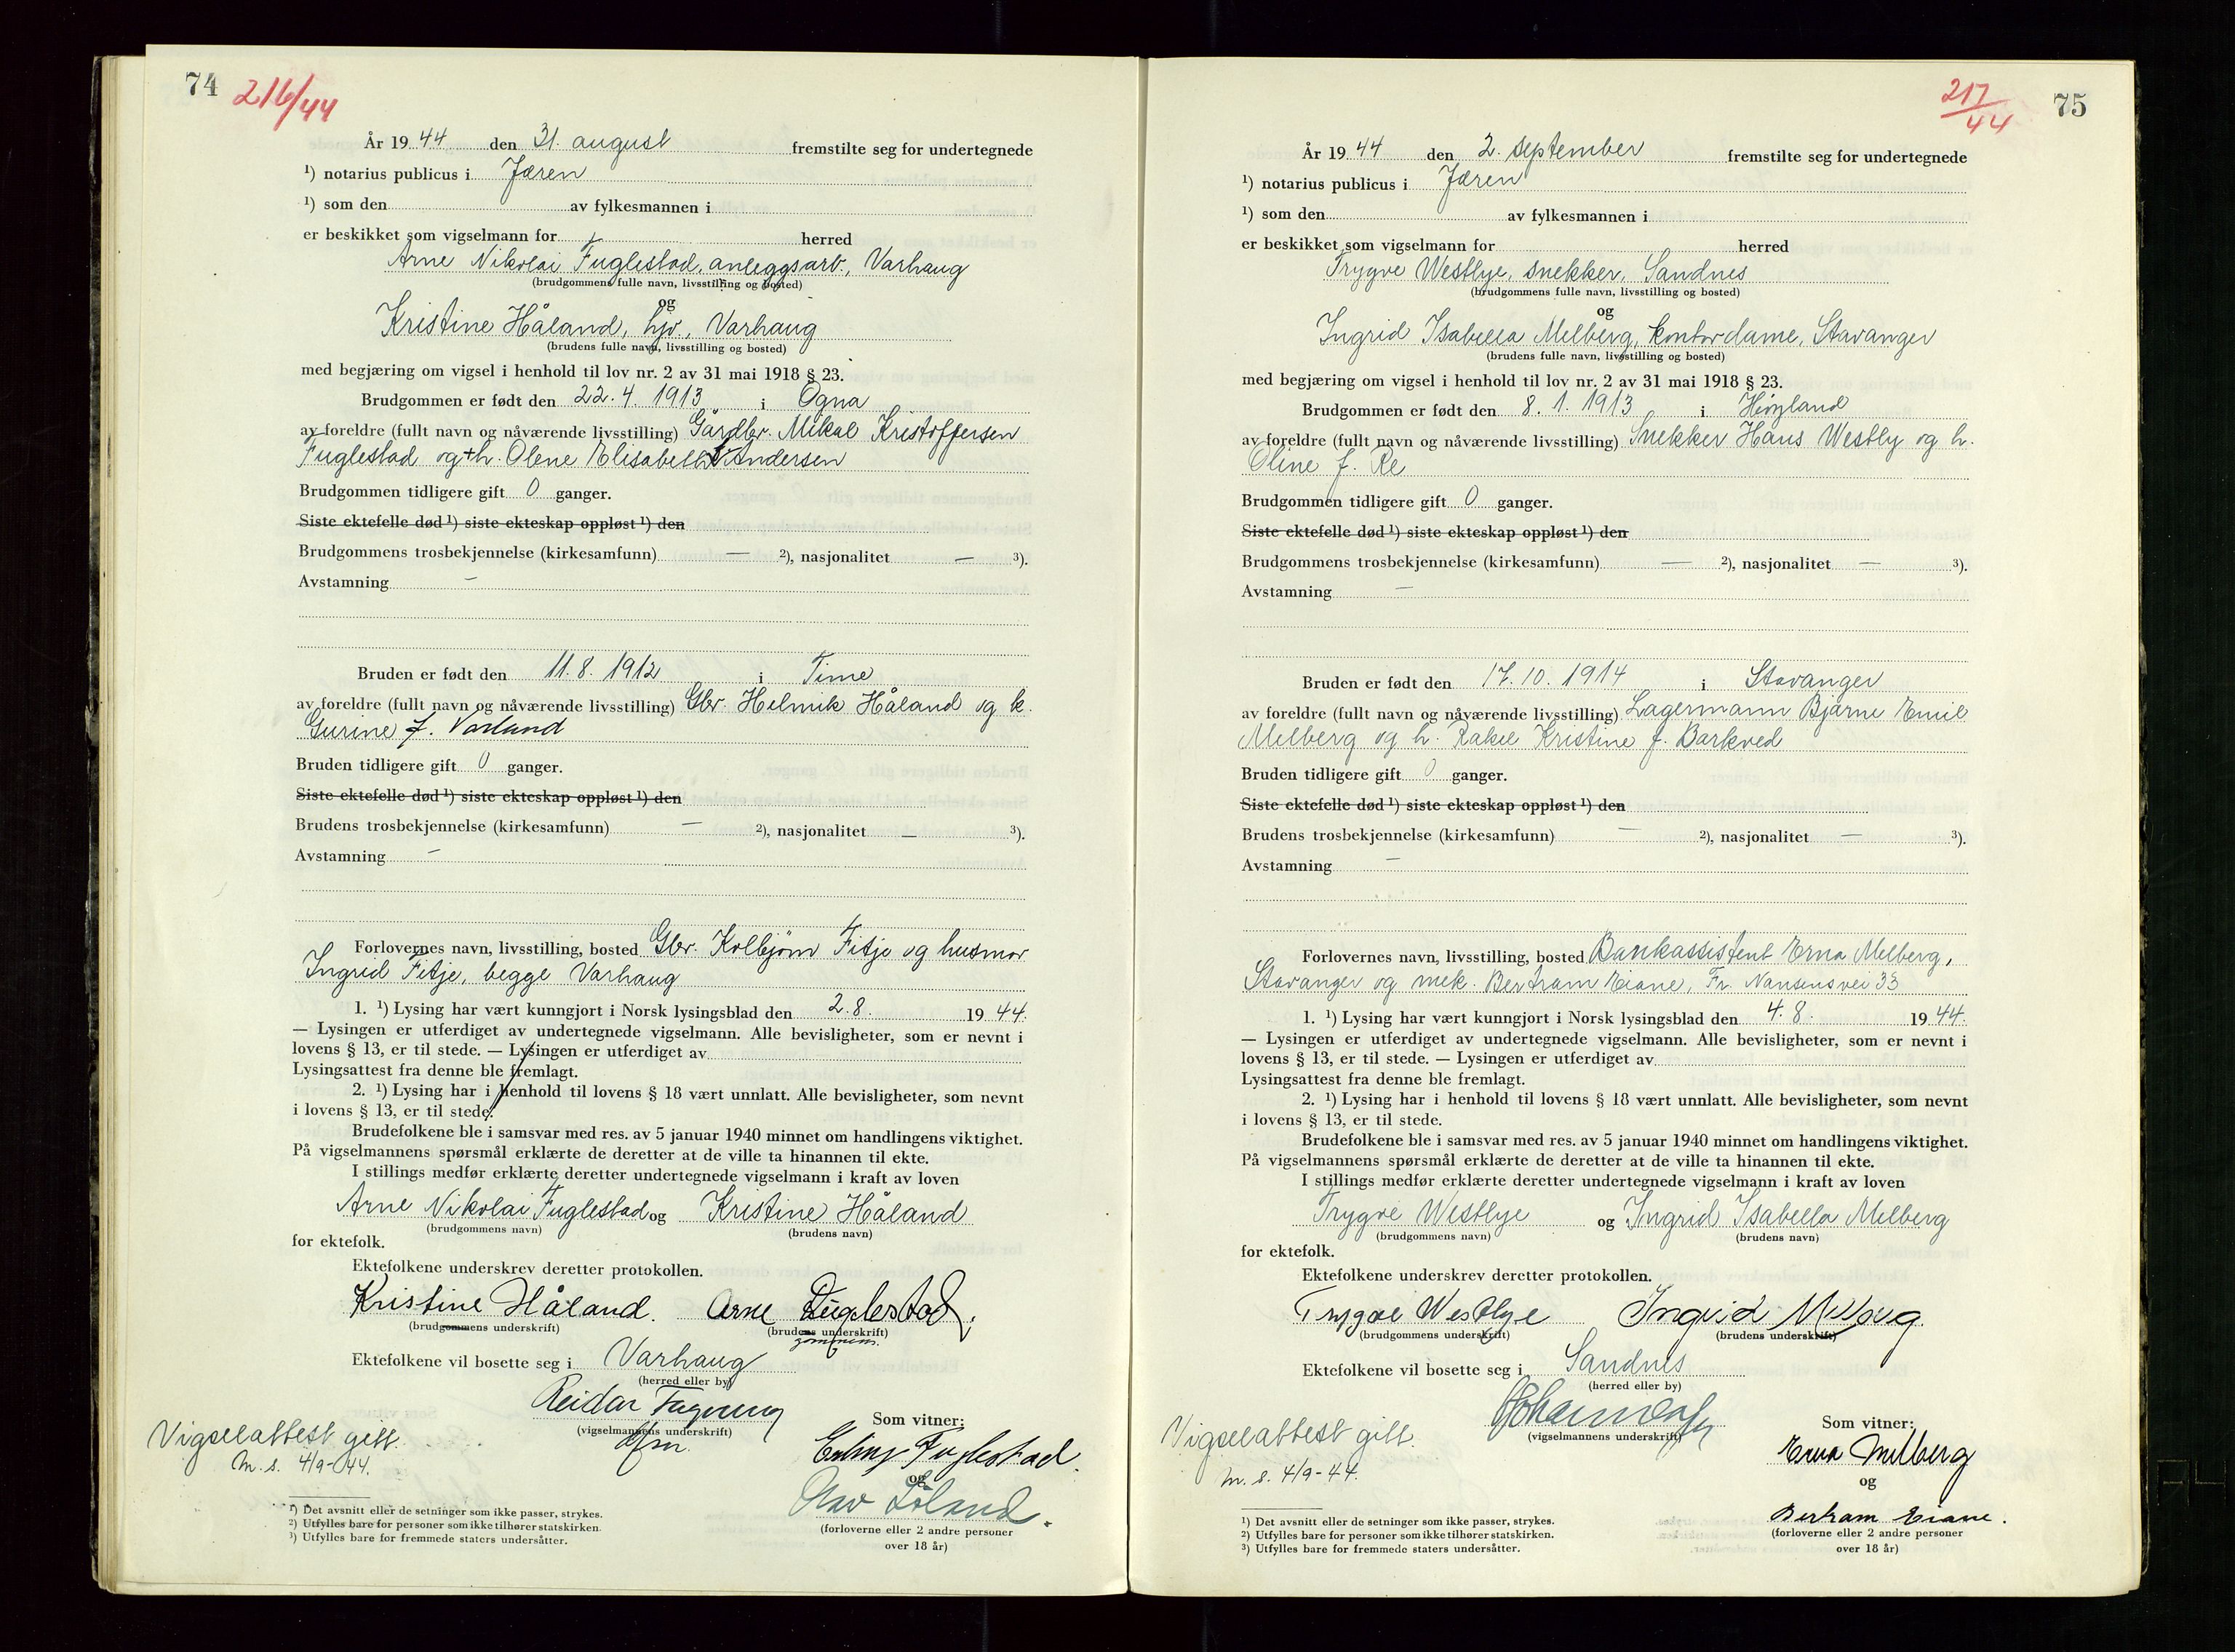 74
216/44
År 19 44 den 31. august fremstilte seg for undertegnede
¹) notarius publicus i Jæren
¹) som den av fylkesmannen i
er beskikket som vigselmann for herred
Arne Nikolai Fuglestad, anleggsarb., Varhaug
(brudgommens fulle navn, livsstilling og bosted)
og
Kristine Håland, hjv., Varhaug
(brudens fulle navn, livsstilling og bosted)
med begjæring om vigsel i henhold til lov nr. 2 av 31 mai 1918 § 23.
Brudgommen er født den 22.4.1913 i Ogna
av foreldre (fullt navn og nåværende livsstilling) Gårdbr. Mikal Kristoffersen
Fuglestad og h. Olene Elisabeth Andersen
Brudgommen tidligere gift 0 ganger.
Siste ektefelle død ¹) siste ekteskap oppløst ¹) den
Brudgommens trosbekjennelse (kirkesamfunn) — ²), nasjonalitet — ³).
Avstamning –
Bruden er født den 11.8.1912 i Time
av foreldre (fullt navn og nåværende livsstilling) Gbr. Helmik Håland og h.
Gurine f. Varland
Bruden tidligere gift 0 ganger.
Siste ektefelle død ¹) siste ekteskap oppløst ¹) den
Brudens trosbekjennelse (kirkesamfunn) — ²), nasjonalitet — ³).
Avstamning –
Forlovernes navn, livsstilling, bosted Gbr. Kolbjörn Fitje og husmor
Ingrid Fitje, begge Varhaug
1. ¹) Lysing har vært kunngjort i Norsk lysingsblad den 2.8. 19 44.
— Lysingen er utferdiget av undertegnede vigselmann. Alle bevisligheter, som er nevnt i
lovens § 13, er til stede. — Lysingen er utferdiget av
Lysingsattest fra denne ble fremlagt.
2. ¹) Lysing har i henhold til lovens § 18 vært unnlatt. Alle bevisligheter, som nevnt
i lovens § 13, er til stede.
Brudefolkene ble i samsvar med res. av 5 januar 1940 minnet om handlingens viktighet.
På vigselmannens spørsmål erklærte de deretter at de ville ta hinannen til ekte.
I stillings medfør erklærte deretter undertegnede vigselmann i kraft av loven
Arne Nikolai Fuglestad og Kristine Håland
(brudgommens navn) (brudens navn)
for ektefolk.
Ektefolkene underskrev deretter protokollen.
Kristine Håland. Arne Fuglestad.
(brudgommens underskrift) (brudens underskrift)
gommens.
Ektefolkene vil bosette seg i Varhaug
(herred eller by)
Reidar
(vigselmannens underskrift)
Som vitner:
Erling Fuglestad.
og
Olav Löland.
(forloverne eller 2 andre personer
over 18 år)
Vigselattest gitt.
m. s. 4/9-44.
¹) Det avsnitt eller de setninger som ikke passer, strykes.
²) Utfylles bare for personer som ikke tilhører statskirken.
³) Utfylles bare for fremmede staters undersåtter.
217/44
75
År 19 44 den 2. september fremstilte seg for undertegnede
¹) notarius publicus i Jæren
¹) som den av fylkesmannen i
er beskikket som vigselmann for herred
Trygve Westlye, snekker, Sandnes
(brudgommens fulle navn, livsstilling og bosted)
og
Ingrid Isabella Melberg, kontordame, Stavanger
(brudens fulle navn, livsstilling og bosted)
med begjæring om vigsel i henhold til lov nr. 2 av 31 mai 1918 § 23.
Brudgommen er født den 8.1.1913 i Høyland
av foreldre (fullt navn og nåværende livsstilling) Snekker Hans Westly og h.
Oline f. Re
Brudgommen tidligere gift 0 ganger.
Siste ektefelle død ¹) siste ekteskap oppløst ¹) den
Brudgommens trosbekjennelse (kirkesamfunn) — ²), nasjonalitet — ³).
Avstamning –
Bruden er født den 17.10.1914 i Stavanger
av foreldre (fullt navn og nåværende livsstilling) Lagermann Bjarne Emil
Melberg og h. Rakel Kristine f. Barkved
Bruden tidligere gift 0 ganger.
Siste ektefelle død ¹) siste ekteskap oppløst ¹) den
Brudens trosbekjennelse (kirkesamfunn) — ²), nasjonalitet — ³).
Avstamning –
Forlovernes navn, livsstilling, bosted Bankassistent Erna Melberg,
Stavanger og mek. Bertram Eiane, Fr. Nansensvei 33
1. ¹) Lysing har vært kunngjort i Norsk lysingsblad den 4.8. 19 44.
— Lysingen er utferdiget av undertegnede vigselmann. Alle bevisligheter, som er nevnt i
lovens § 13, er til stede. — Lysingen er utferdiget av
Lysingsattest fra denne ble fremlagt.
2. ¹) Lysing har i henhold til lovens § 18 vært unnlatt. Alle bevisligheter, som nevnt
i lovens § 13, er til stede.
Brudefolkene ble i samsvar med res. av 5 januar 1940 minnet om handlingens viktighet.
På vigselmannens spørsmål erklærte de deretter at de ville ta hinannen til ekte.
I stillings medfør erklærte deretter undertegnede vigselmann i kraft av loven
Trygve Westlye og Ingrid Isabella Melberg
(brudgommens navn) (brudens navn)
for ektefolk.
Ektefolkene underskrev deretter protokollen.
Trygve Westlye Ingrid Melberg.
(brudgommens underskrift) (brudens underskrift)
Ektefolkene vil bosette seg i Sandnes
(herred eller by)
(vigselmannens underskrift)
Som vitner:
Erna Melberg
og
Bertram Eiane.
(forloverne eller 2 andre personer
over 18 år)
Vigselattest gitt.
m. s. 4/9-44.
¹) Det avsnitt eller de setninger som ikke passer, strykes.
²) Utfylles bare for personer som ikke tilhører statskirken.
³) Utfylles bare for fremmede staters undersåtter.